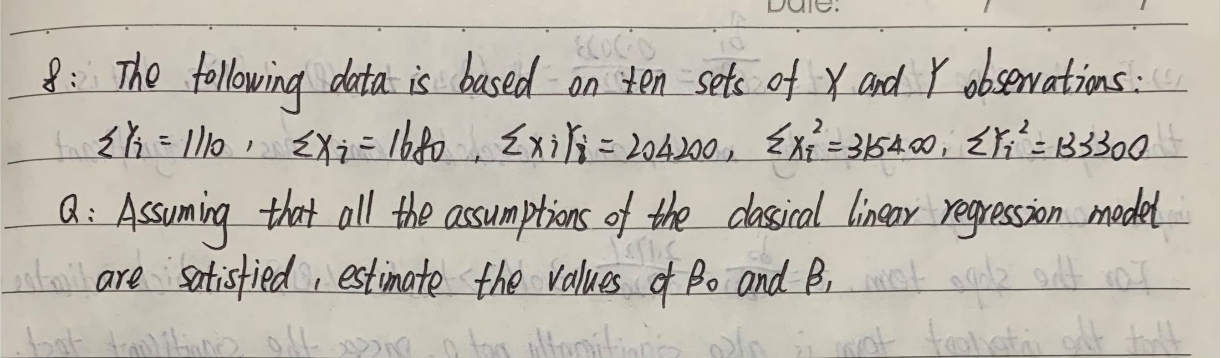 Date:
8: The following data is based on ten sets of X and Y observations:
ΣYi = 1110, ΣXi = 1680, ΣXiYi = 204200, ΣXi² = 315400, ΣYi² = 133300
Q: Assuming that all the assumptions of the classical linear regression model
are satisfied, estimate the values of β0 and β1